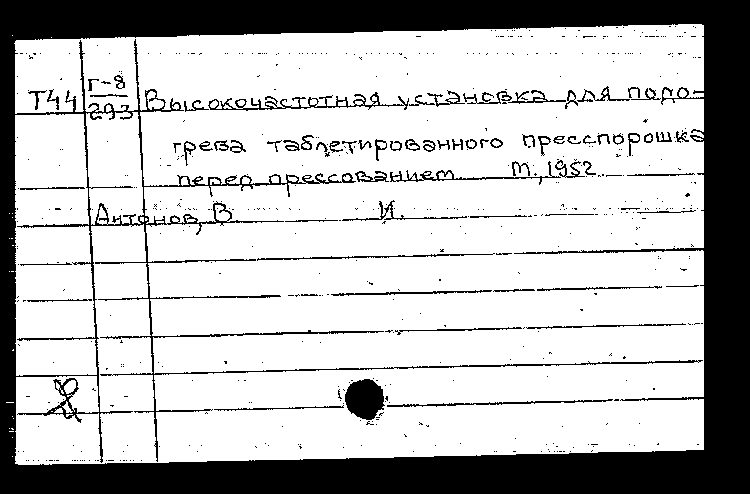 Т44 Г-8 Высокочастотная установка для подо-
293
грева таблетированного пресспорошка
перед прессованием М., 1952
Антонов, В И.